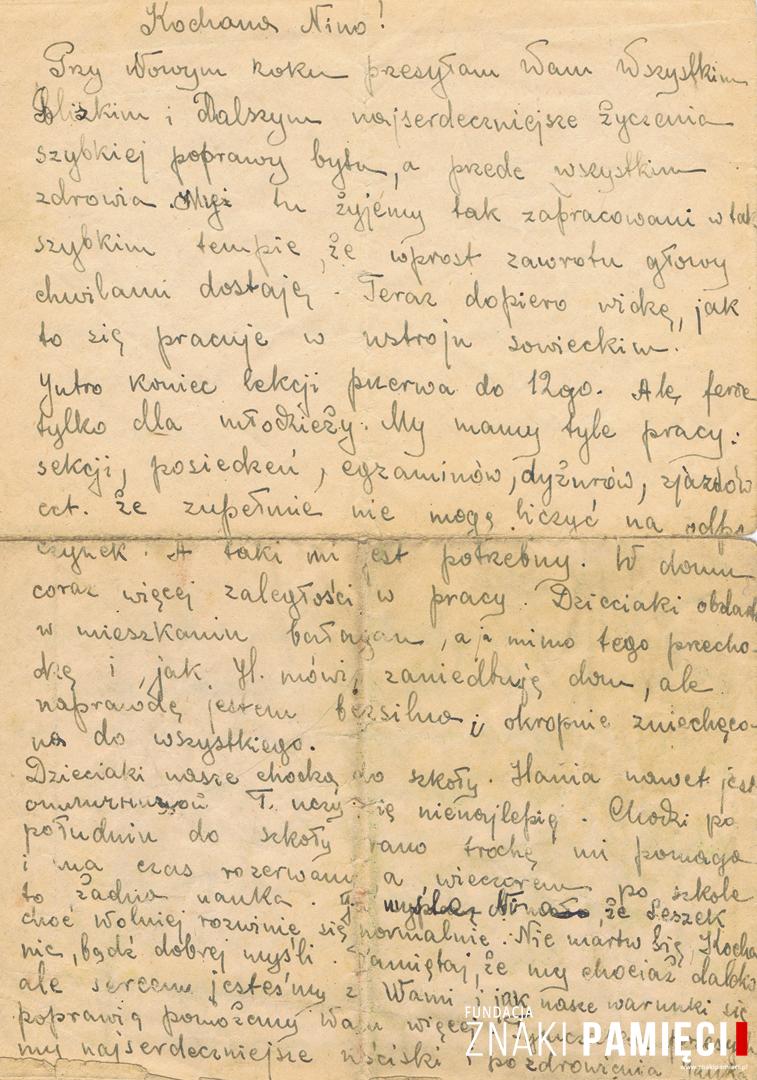 Kochana Nino!
Przy Nowym roku przesyłam Wam Wszystkim
Blizkim i Dalszym najserdeczniejsze życzenia
szybkiej poprawy bytu, a przede wszystkim
zdrowia. My tu żyjemy tak zapracowani w tak
szybkim tempie, że wprost zawrotu głowy
chwilami dostaję. Teraz dopiero widzę, jak
to się pracuje w ustroju sowieckim.
Jutro koniec lekcji przerwa do 12go. Ale ferie
tylko dla młodzieży. My mamy tyle pracy:
sekcji, posiedzeń, egzaminów, dyżurów, zjazdów
ect. że zupełnie nie mogę liczyć na odpo
czynek. A taki mi jest potrzebny. W domu
coraz więcej zaległości w pracy. Dzieciaki obdarte
w mieszkaniu bałagan, a ja mimo tego przecho-
dzę i, jak H. mówi, zaniedbuję dom, ale
naprawdę jestem bezsilna i okropnie zniechęco-
na do wszystkiego.
Dzieciaki nasze chodzą do szkoły. Hania nawet jest
T. uczy się nienajlepiej. Chodzi po
południu do szkoły rano trochę mi pomaga
i ma czas rozerwany a wieczorem po szkole
to żadna nauka. że Leszek
choć wolniej rozwinie się normalnie. Nie martw się, Kocha
nie, bądź dobrej myśli. Pamiętaj, że my chociaż daleko
ale sercem jesteśmy z Wami i jak nasze warunki się
poprawią pomożemy Wam więcej.
my najserdeczniejsze uściski i pozdrowienia
FUNDACJA
ZNAKI PAMIĘCI
www.znakipamieci.pl